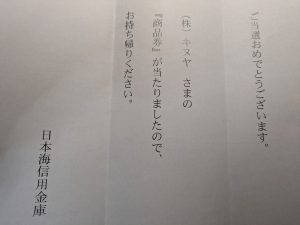 ご当選おめでとうございます。
（株）キヌヤ　さまの
『商品券』が当たりましたので、
お持ち帰りください。
日本海信用金庫